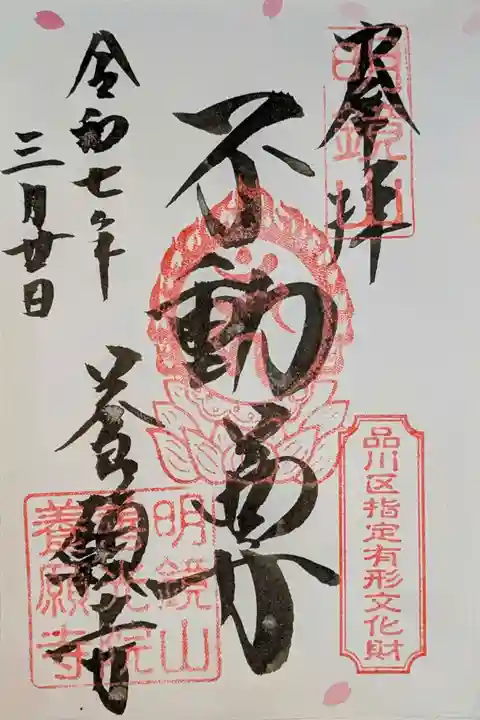 奉拝
明鏡山
不動尊
品川区指定有形文化財
令和七年
三月廿日
養願寺
明鏡山
善光院
養願寺